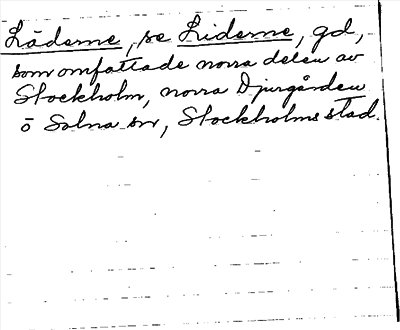 Läderne, se Liderne, gd,
som omfattade norra delen av
Stockholm, norra Djurgården
o Solna sn, Stockholms stad.